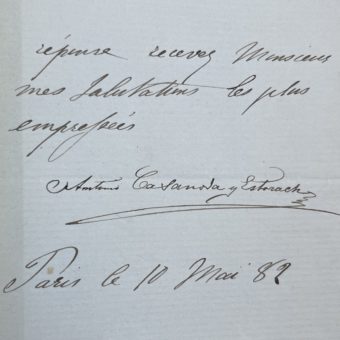 réponse recevez Monsieur
mes Salutations les plus
empressées
Antonio Casanova y Estorach
Paris le 10 Mai 82